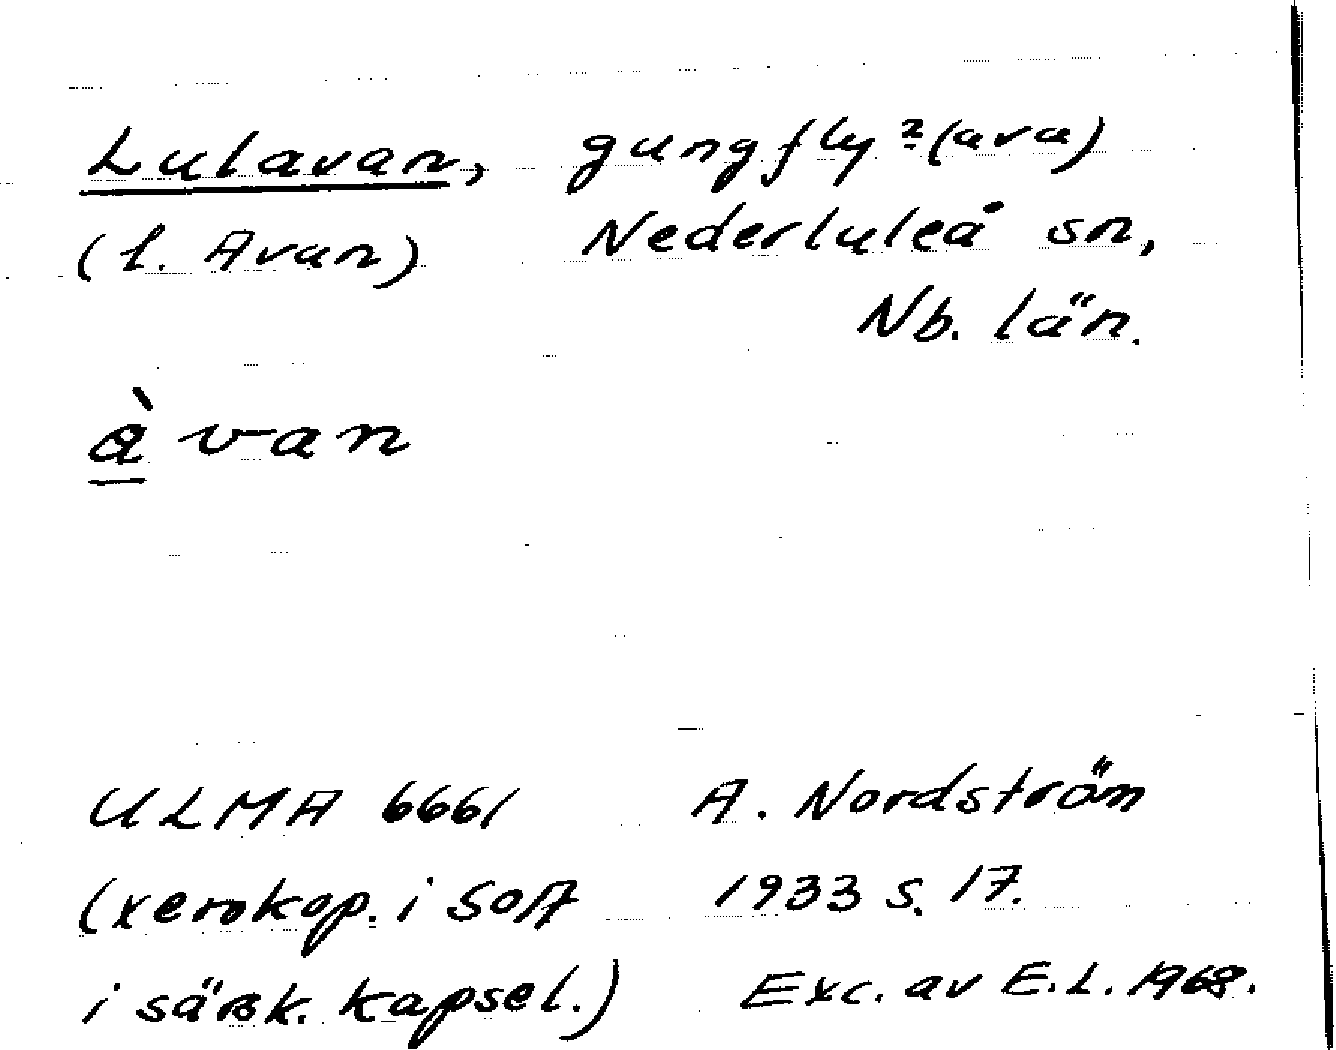 Lulavan, gungfly ?(ava)
(l. Avan) Nederluleå sn,
Nb. län.
àvan
ULMA 6661 A. Nordström
(xerokop. i SOA 1933 s. 17.
i särsk. kapsel.) Exc. av E.L. 1968.